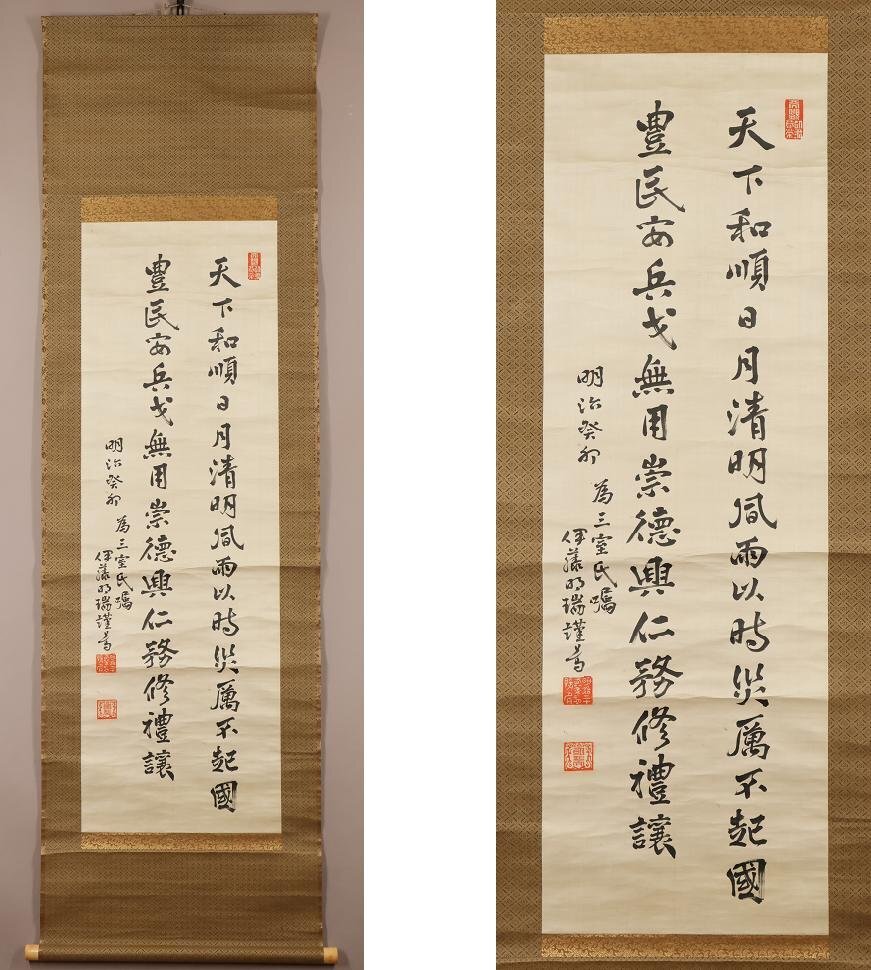 天下和順日月清明風雨以時災厲不起國
豐民安兵戈無用崇德興仁務修禮讓
明治癸卯 為三室氏嘱
伊藤明瑞謹書
天下和順日月清明風雨以時災厲不起國
豐民安兵戈無用崇德興仁務修禮讓
明治癸卯 為三室氏嘱
伊藤明瑞謹書